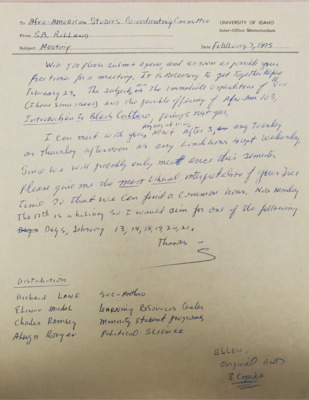 To Afro-American Studies Co-ordinating Committee
UNIVERSITY OF IDAHO
Inter-Office Memorandum
From S.R. Rolland
Subject Meeting
Date February 7, 1975
Will you please submit a and as soon as possible your
free time for a meeting. It is necessary to get together before
February 23, The subject the immediate of
and the possible offering of Afro-Am 103,
Introduction to Black Culture, perhaps next year.
I can meet with you, anyday at noon, next after 3 pm any Tuesday
or Thursday afternoon or any lunch hour except Wednesday.
Since we will probably only meet once this semester
Please give me the most liberal interpretation of your free
time so that we can find a common hour. Note Monday
the 17th is a holiday so I would aim for one of the following
Days, February 13, 14, 18, 19, 20, 21.
Thanks
S
Distribution
Richard LANE Soc-Anthro
Learning Resources Center
Charles Ramsey Minority Student Programs
Political Science
Ellen,
Original and
2 copies